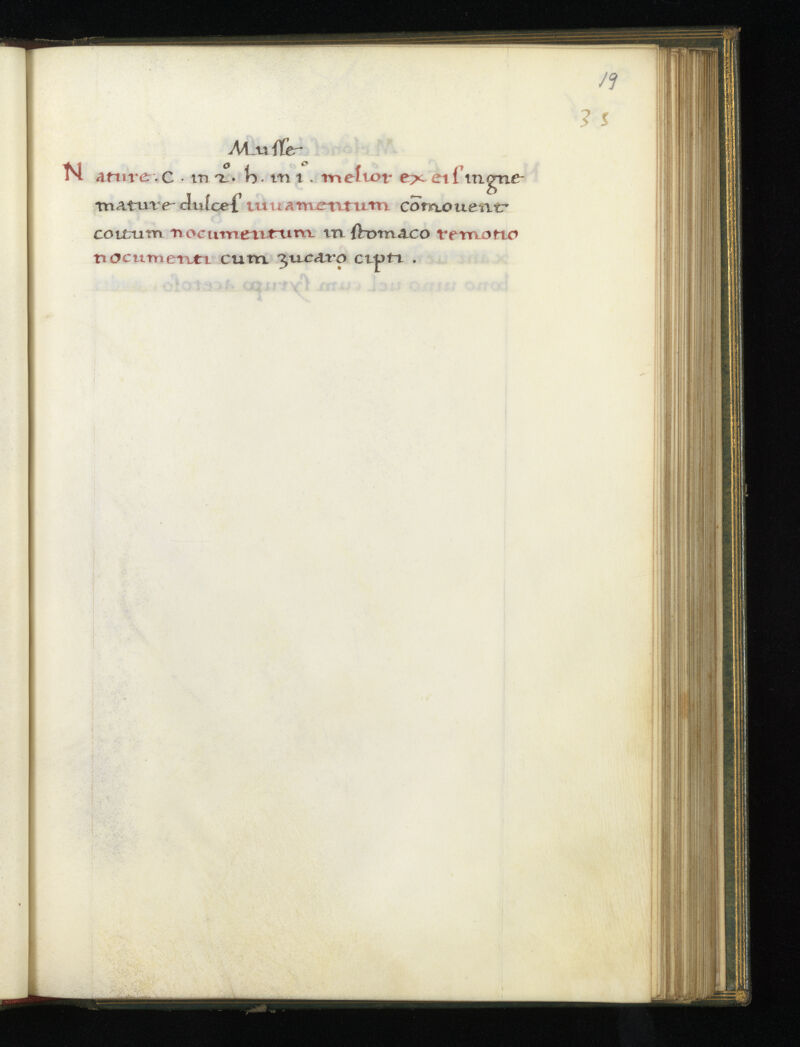 19
35
Musse
Nature . c . in 2º . h . in 1º . melior ex eis ingne
mature dulces iuuamentum co͞mouent
coitum nocumentum in stomaco remotio
nocumenti cum zucaro cipti .